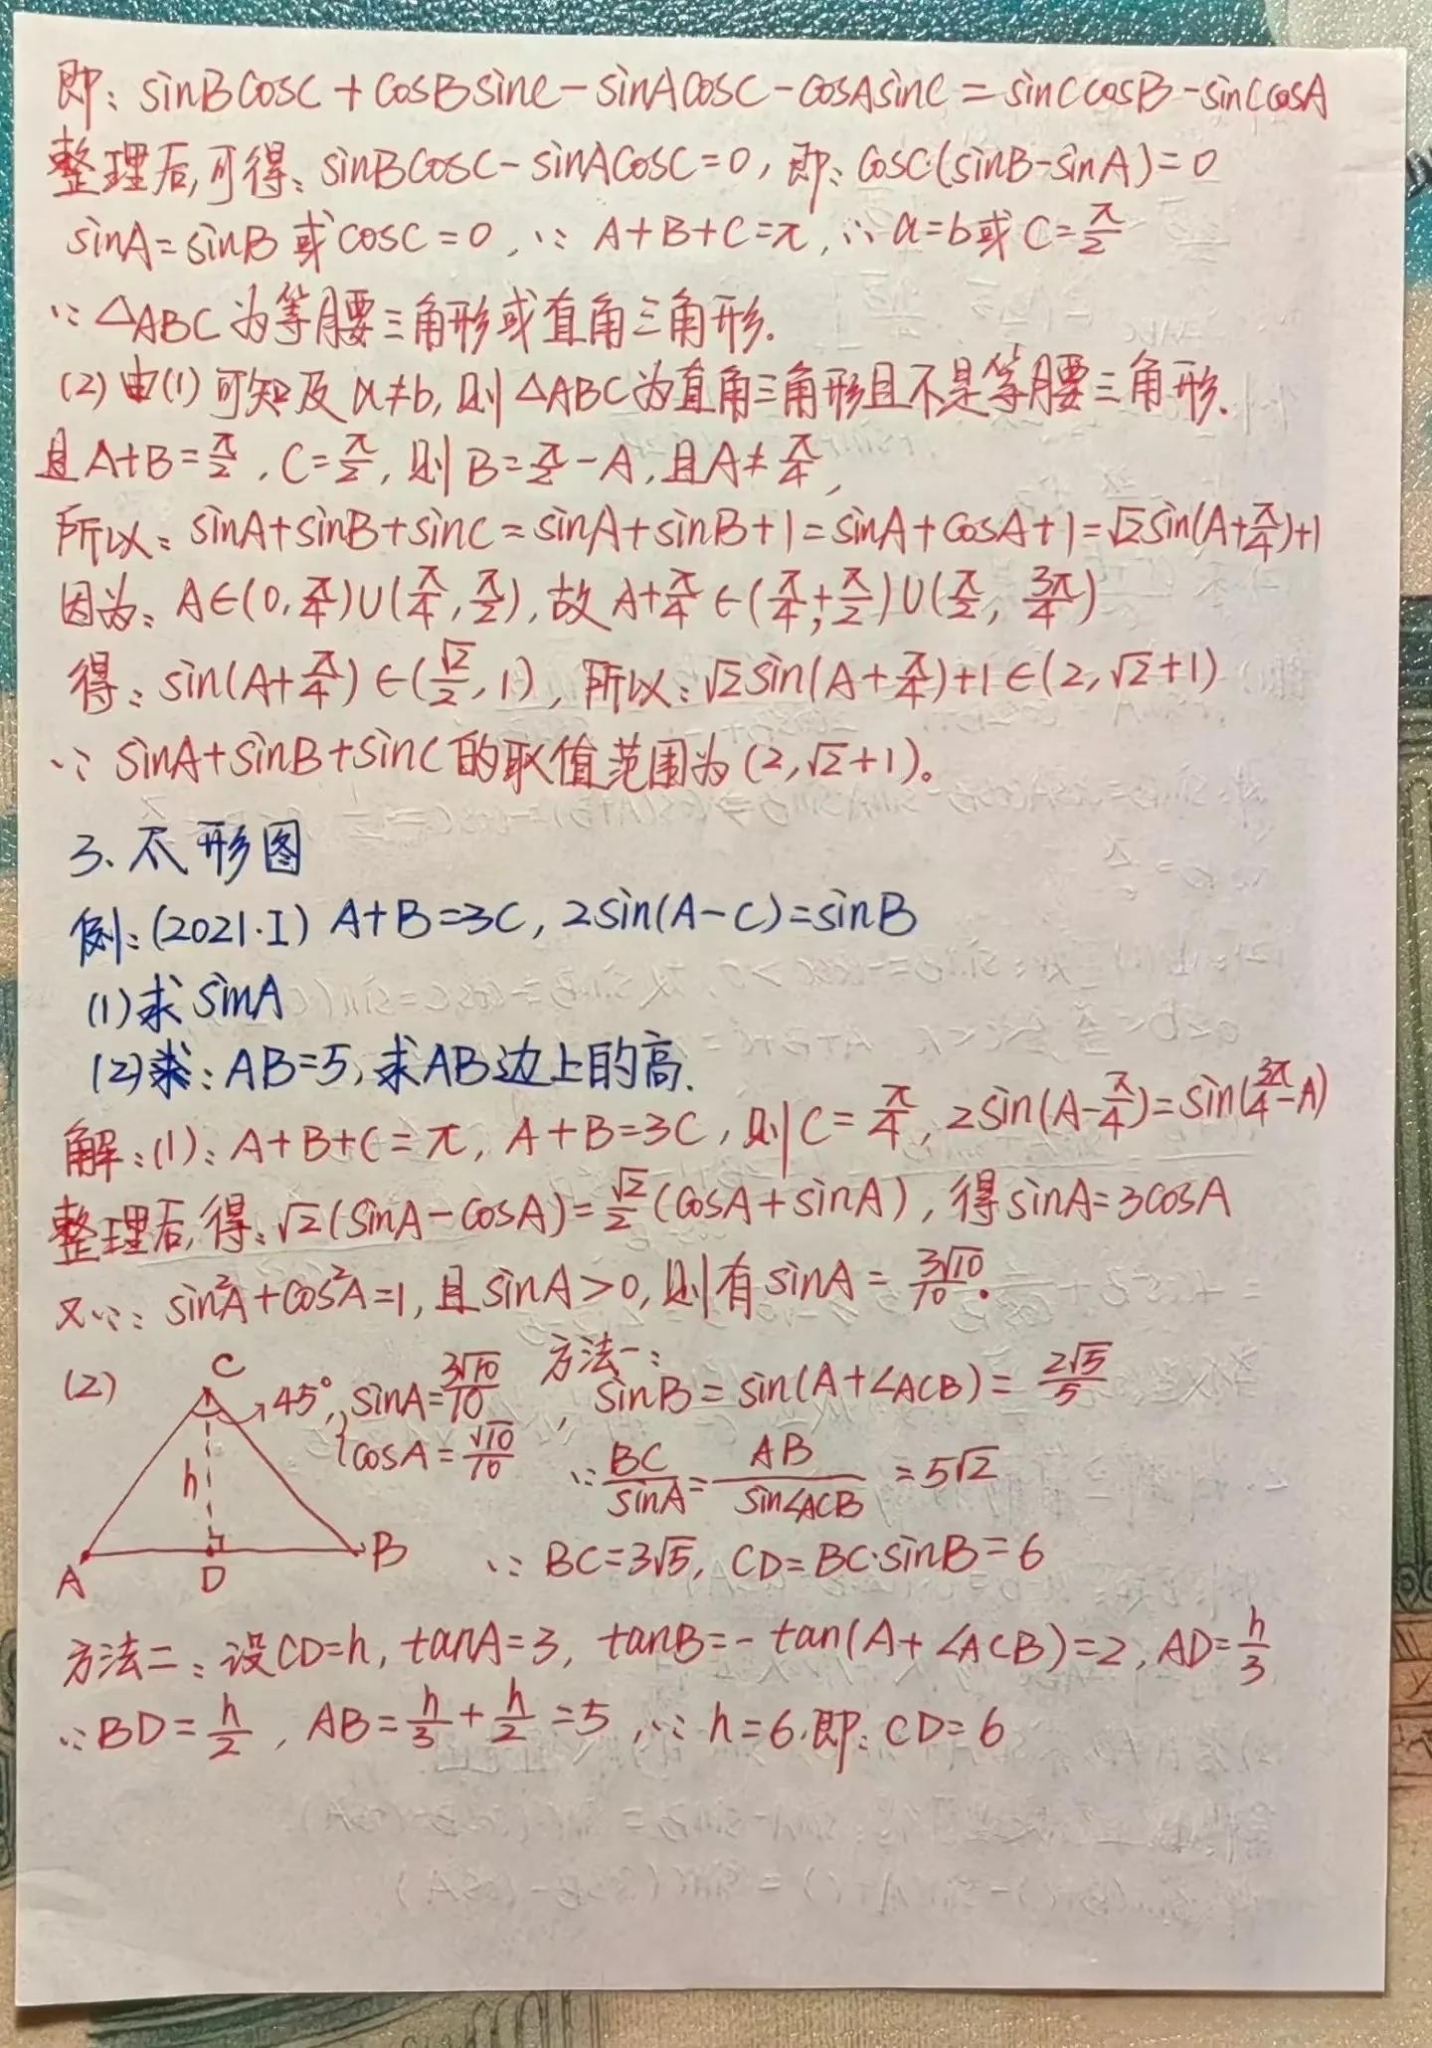 即：sinBcosC + cosBsinC - sinAcosC - cosAsinC = sinCcosB - sinCcosA
整理后,可得：sinBcosC - sinAcosC = 0, 即：cosC·(sinB-sinA) = 0
sinA = sinB 或 cosC = 0, ∵ A+B+C=π, ∴ a=b或 C=π/2
∵ △ABC为等腰三角形或直角三角形.
(2) 由(1)可知及a≠b, 则△ABC为直角三角形且不是等腰三角形.
且A+B=π/2, C=π/2, 则B=π/2-A, 且A≠π/4,
所以：sinA+sinB+sinC = sinA+sinB+1 = sinA+cosA+1 = √2sin(A+π/4)+1
因为：A∈(0,π/4)∪(π/4,π/2), 故A+π/4∈(π/4,π/2)∪(π/2,3π/4)
得：sin(A+π/4)∈(√2/2,1), 所以：√2sin(A+π/4)+1∈(2,√2+1)
∵ sinA+sinB+sinC的取值范围为(2,√2+1)。
3、爪形图
例：(2021·I) A+B=3C, 2sin(A-C)=sinB
(1)求sinA
(2)求：AB=5,求AB边上的高.
解：(1)：A+B+C=π, A+B=3C, 则C=π/4, 2sin(A-π/4)=sin(3π/4-A)
整理后,得：√2(sinA-cosA)=√2/2(cosA+sinA), 得sinA=3cosA
又∵：sin²A+cos²A=1, 且sinA>0, 则有sinA=3√10/10.
(2) C 45°, sinA=3√10/10 方法一：, sinB=sin(A+∠ACB)=2√5/5
h cosA=√10/10 ∵ BC/sinA = AB/sin∠ACB = 5√2
A D B ∵ BC=3√5, CD=BC·sinB=6
方法二：设CD=h, tanA=3, tanB=-tan(A+∠ACB)=2, AD=h/3
∵ BD=h/2, AB=h/3+h/2=5, ∵ h=6.即：CD=6